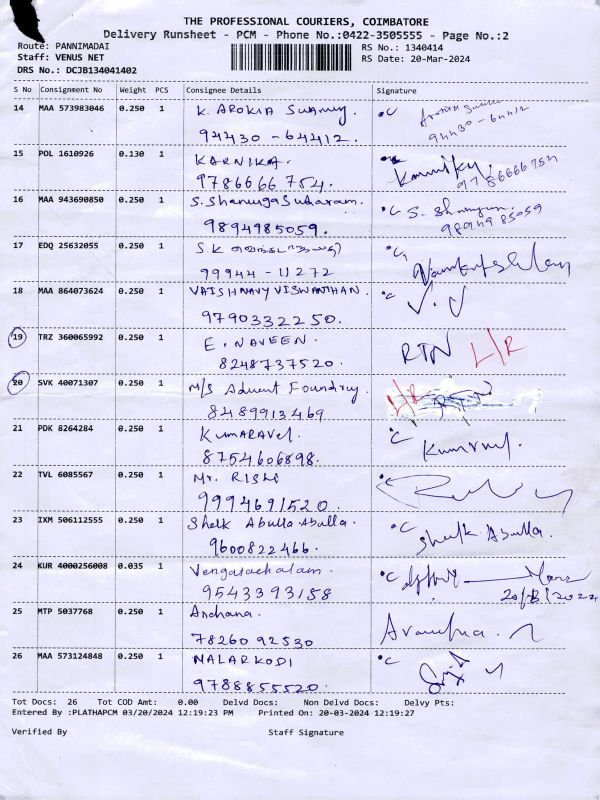 THE PROFESSIONAL COURIERS, COIMBATORE
Delivery Runsheet - PCM - Phone No.:0422-3505555 - Page No.:2
Route: PANNIMADAI RS No.: 1340414
Staff: VENUS NET RS Date: 20-Mar-2024
DRS No.: DCJB134041402
S No Consignment No Weight PCS Consignee Details Signature
14 MAA 573983046 0.250 1 K. AROKIA Swamy
94430 - 64412. 94430-64412
15 POL 1610926 0.130 1 KARNIKA.
9786666754. 9786666754
16 MAA 943690850 0.250 1 S. Shanmuga Sundaram. °C S.
9894985059. 9894985059
17 EDQ 25632055 0.250 1 S.K
99944 - 11272
18 MAA 864073624 0.250 1 VAISHNAVY VISWANTHAN. °C V.V
9790332250.
19 TRZ 360065992 0.250 1 E. NAVEEN. RTN L/R
8248737520.
20 SVK 40071307 0.250 1 M/S Advent Foundry L/R
8489913469
21 PDK 8264284 0.250 1 Kumaravel. °C
8754606898.
22 TVL 6085567 0.250 1 Mr. RISHI
9994691520.
23 IXM 506112555 0.250 1 Sheik Abulla.Abulla. °C Sheik.Abulla.
9600822466.
24 KUR 4000256008 0.035 1 Vengatachalam. °C
9543393158
25 MTP 5037768 0.250 1 Archana.
78260 92530
26 MAA 573124848 0.250 1 MALARKODI °C
9788855520.
Tot Docs: 26 Tot COD Amt: 0.00 Delvd Docs: Non Delvd Docs: Delvy Pts:
Entered By :PLATHAPCM 03/20/2024 12:19:23 PM Printed On: 20-03-2024 12:19:27
Verified By Staff Signature